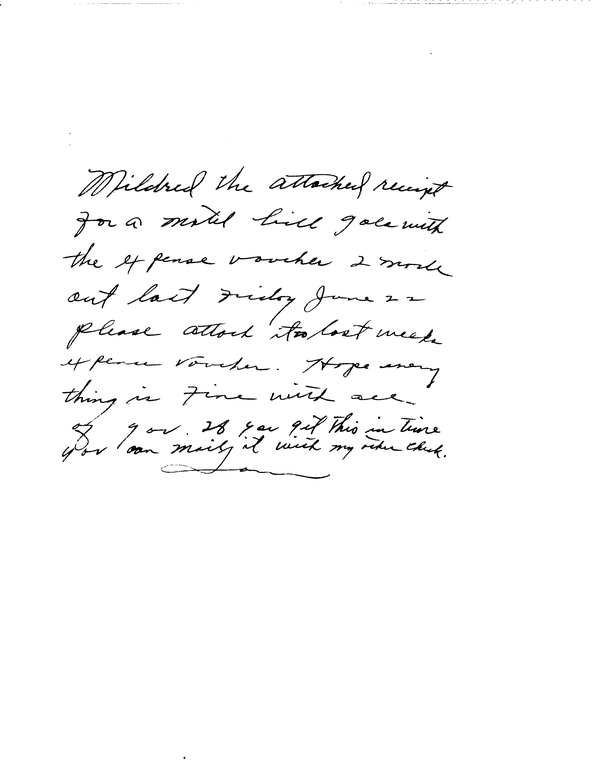 Mildred the attached receipt
for a motel bill goes with
the expense voucher I made
out last Friday June 22
please attach it to last weeks
expense voucher. Hope every
thing is Fine with all
of you. If you get this in time
you can mail it with my other check.